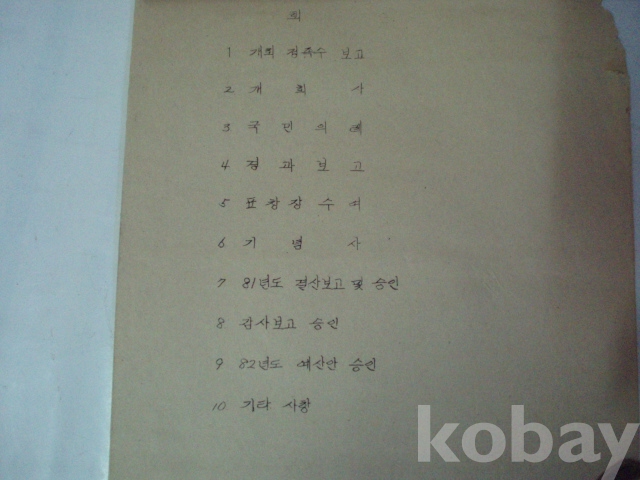 회
1 개회 정족수 보고
2 개 회 사
3 국 민 의 례
4 경 과 보 고
5 표 창 장 수 여
6 기 념 사
7 81년도 결산보고 및 승인
8 감사보고 승인
9 82년도 예산안 승인
10 기타 사항
kobay